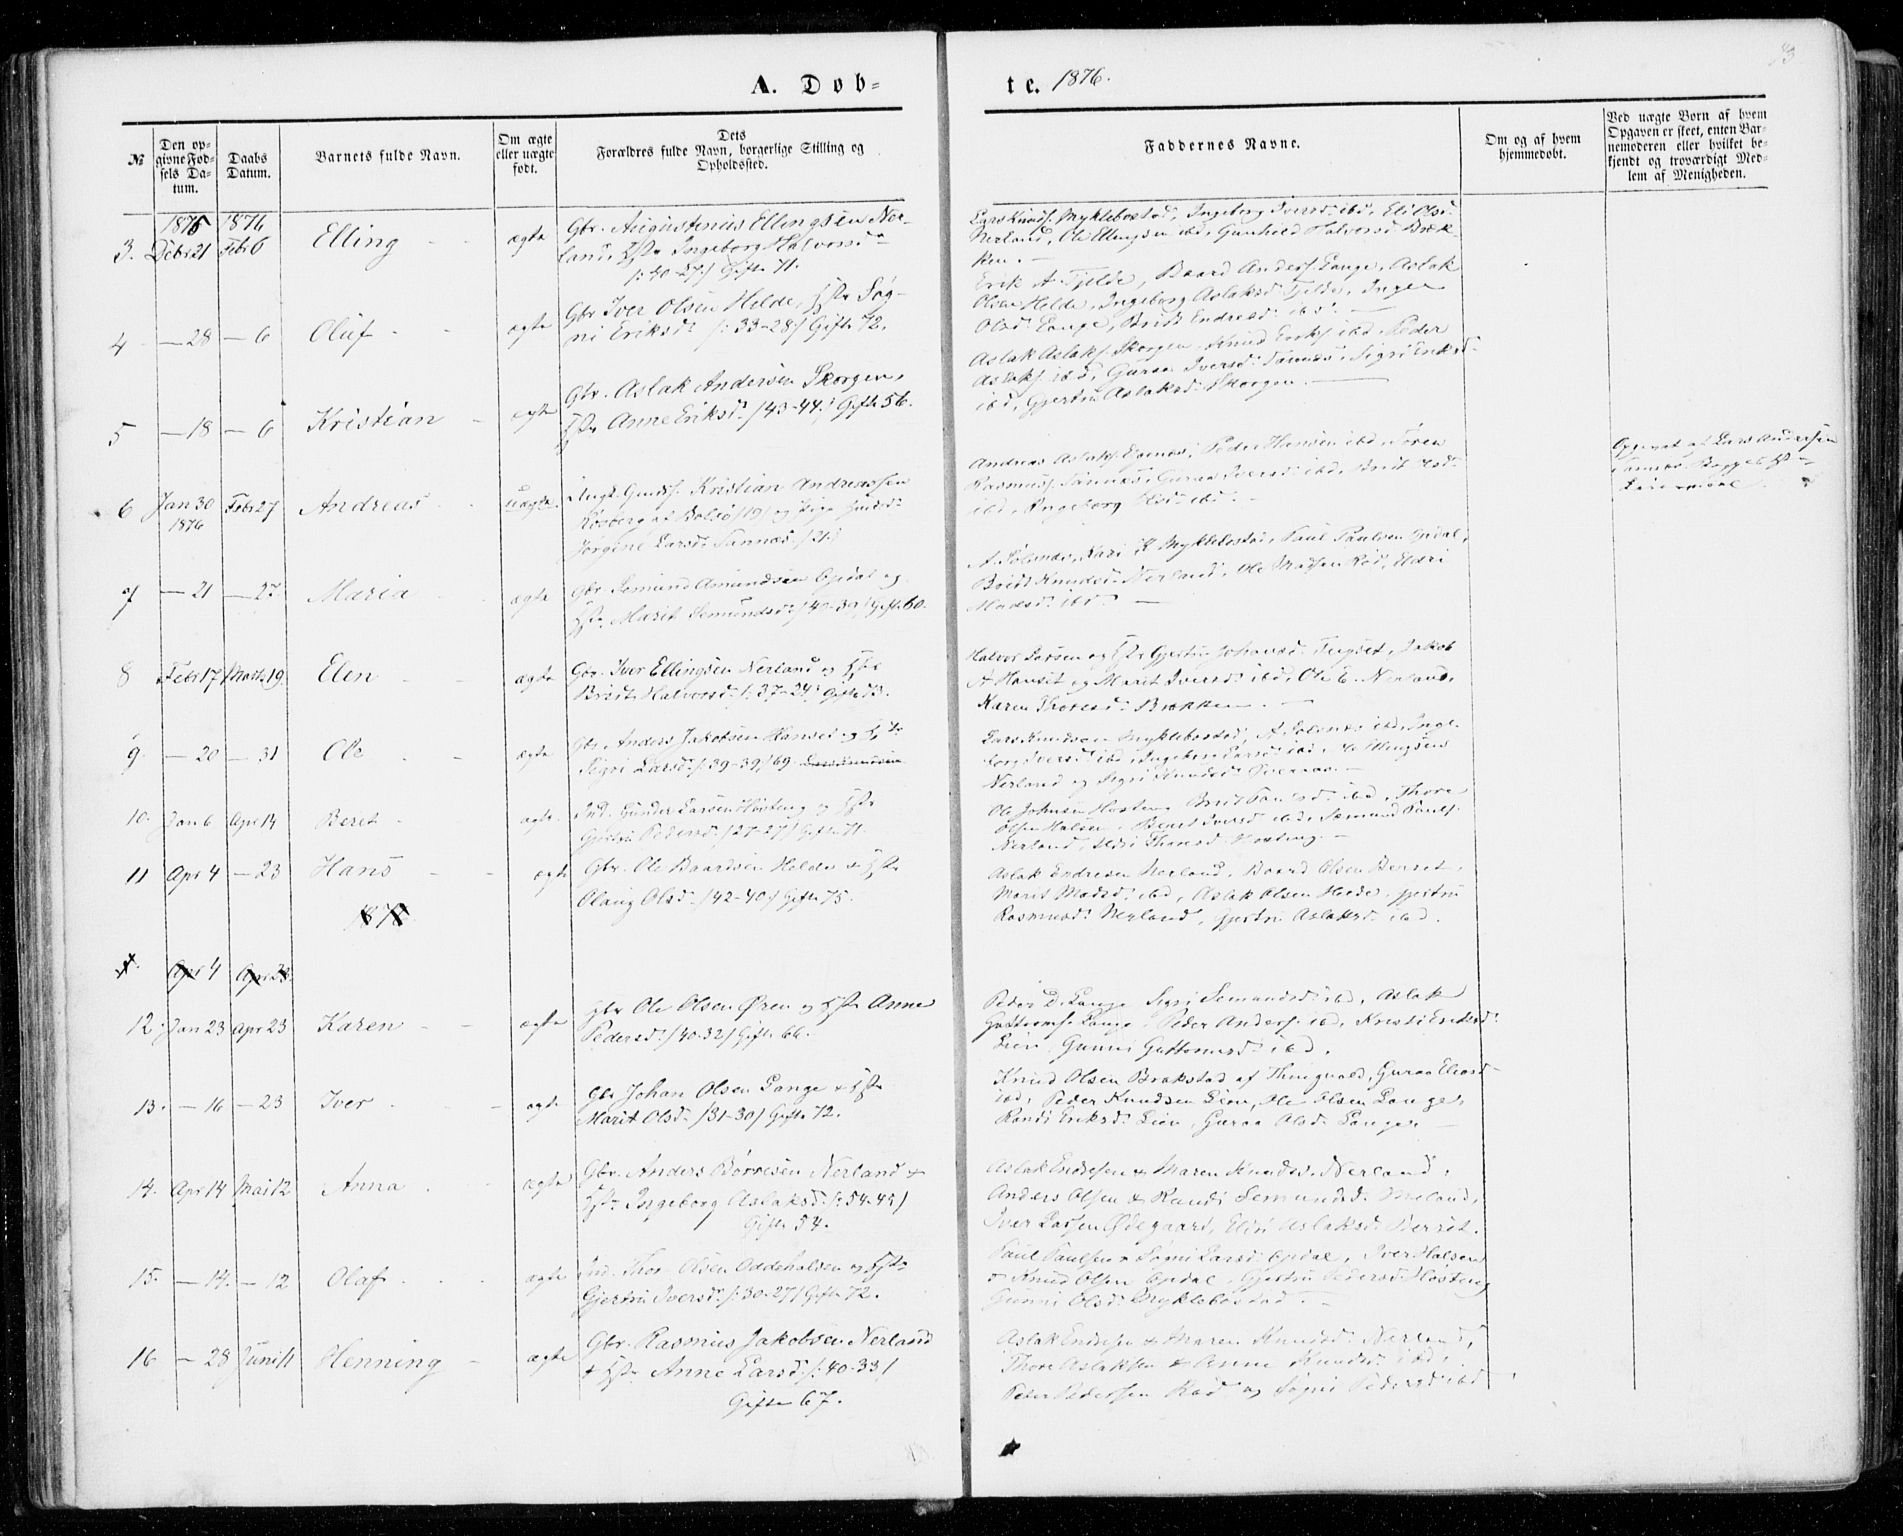 A. Dob-
te. 1876.
№
Den opgivne Fødsels Datum.
Daabs Datum.
Barnets fulde Navn.
Om ægte eller uægte født.
Dets Forældres fulde Navn, borgerlige Stilling og Opholdssted.
Faddernes Navne.
Om og af hvem hjemmedøbt.
Ved uægte Børn af hvem Opgaven er skeet, enten Barnemoderen eller hvilket bekjendt og troværdigt Medlem af Menigheden.
1875 1876
3. Debr 21 Febr 6 Elling ægte
Gbr. Augustinus Ellingsen Ner-
land, Hstr Ingeborg Halvorsdr
/: 40-27/ Gift 71.
Lars Knuds. Myklebostad, Ingeborg Iversd. ibd, Eli Olsd.
Nerland, Ole Ellingsen ibd, Gunhild Halvorsd. Bræk-
ken.
4 — 28 — 6 Oluf ægte
Gbr Iver Olsen Helde, Hstr Søg-
ni Eriksdr /: 33-28/ Gifte 72.
Erik A Fjelde, Baard Anders. Lange, Aslak
Olsen Helde, Ingeborg Aslaksd. Fjelde, Inger
Olsd. Lange, Brit Endresd. ibd.
5 — 18 — 6 Kristian ægte
Gbr. Aslak Andersen Skorgen,
Hstr Anne Eriksdr /43-44/ Gifte 56.
Aslak Aslaks. Skorgen, Knud Eriks. ibd, Peder
Aslaks. ibd, Guraa Iversd. Sannes, Sigri Eriksd.
ibd, Gjertru Aslaksd. Skorgen.
6 Jan 30 1876 Febr 27 Andreas uægte
Ungk. Kristian Andreassen
af Bolsø /19/ og Pige
Jørgine Larsd. Sannes /21/
Peder Hansen ibd, Søren
Rasmuss. Sannes, Guraa Iversd. ibd,
ibd, Ingeborg Olsd. ibd.
Opgivet af Lars Andersen
Sannes
7 — 21 — 27 Maria ægte
Gbr. Semund Amundsen Opdal og
Hstr. Marit Semundsd. /40-39/ Gifte 60.
A. Solenes, Kari K Myklebostad, Paul Paulsen Opdal,
Brit Knudsd. Nerland, Ole Madsen Rød,
Madsd. ibd.
8 Febr 17 Marts 19. Elen ægte
Gbr. Iver Ellingsen Nerland og Hstr
Brit Halvorsd. /: 37-34/ Gifte 73.
Halvor Larsen og Hstr Gjertru Johansd. Jakob
A Hanset og Marit Iversd. ibd, Ole E. Nerland,
Karen Thoresd. Brækken.
9. — 20 — 31 Ole ægte
Gbr. Anders Jakobsen Hanset og Hstr
Sigri Larsd. /: 39-39/ 69.
Lars Knudsen Myklebostad, A Solenes ibd, Inge-
borg Iversd. ibd, Ingeborg Larsd. ibd, Ole Ellingsen
Nerland og Sigri Knudsd.
10. Jan 6 Apr 14 Beret ægte
Ind. Gunder Larsen Høsteng og Hstr
Gjertru Pedersd. /27-27/ Gifte 71.
Ole Johnsen Høsteng, Brit ibd, Thore
Olsen Halsen, Beret Iversd. ibd, Semund Pauls.
Nerland, Thoresd. Høsteng
11 Apr 4 — 23 Hans ægte
Gbr. Ole Baardsen Helde & Hstr
Olaug Olsd. /42-40/ Gifte 75.
Aslak Endresen Nerland, Baard Olsen Berset,
Marit Madsd. ibd, Aslak Olsen Helde, Gjertru
Rasmusd. Nerland, Gjertru Aslaksd. ibd.
Apr 4 Apr 23
12. Jan 23 Apr 23 Karen ægte
Gbr Ole Olsen Øren og Hstr Anne
Pedersd. /40-32/ Gifte 66.
Peder D. Lange, Sigri Semundsd. ibd, Aslak
Guttorms. Lange, Peder Anders. ibd, Kristi Eriksd.
Lien, Gunni Guttormsd. ibd.
13. — 16 — 23 Iver ægte
Gbr Johan Olsen Lange & Hstr
Marit Olsd. /31-30/ Gifte 72.
Knud Olsen Brakstad af Thingvold, Guraa
ibd, Peder Knudsen Lien, Ole Olsen Lange,
Randi Eriksd. Lien, Guraa Olsd. Lange.
14. Apr 14 Mai 12 Anna ægte
Gbr. Anders Børresen Nerland &
Hstr Ingeborg Aslaksd. /: 54-49/
Gifte 54.
Aslak Endresen & Maren Knudsd. Nerland,
Anders Olsen & Randi Semundsd. Meland,
Iver Larsen Ødegaard, Eldri Aslaksd. Berset.
15. — 14. — 12 Olaf ægte
Ind. Thor Olsen Oddehalsen og Hstr
Gjertru Iversd. /: 30-27/ Gifte 72.
Paul Paulsen & Søgni Larsd. Opdal, Iver Halsen
& Knud Olsen Opdal, Gjertru Pedersd. Høsteng
Gunni Olsd. Myklebostad.
16 — 28 Juni 11 Henning ægte
Gbr. Rasmus Jakobsen Nerland
& Hstr Anne Larsd. /: 40-33/
Gifte 67.
Aslak Endresen & Maren Knudsd. Nerland,
Thore Aslaksen & Anne Knudsd. ibd,
Peter Pedersen Rød og Søgni Pedersd. ibd